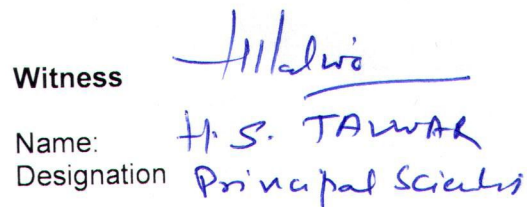 Witness
Name: H. S. TALWAR
Designation Principal Scientis